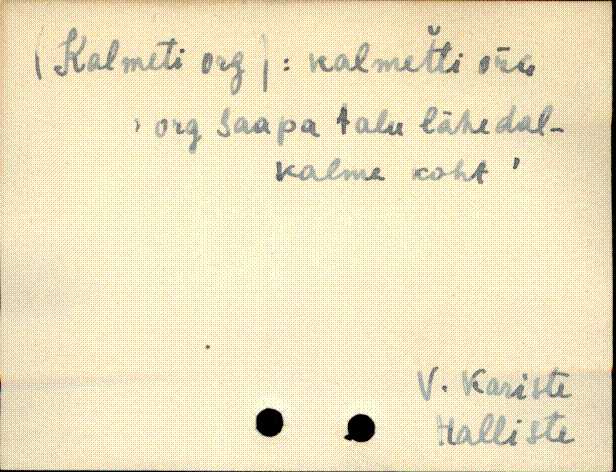 (Kalmeti org): kalmet̆ti oru
' org Saapa talu lähedal-
kalme koht '
V. Kariste
Halliste